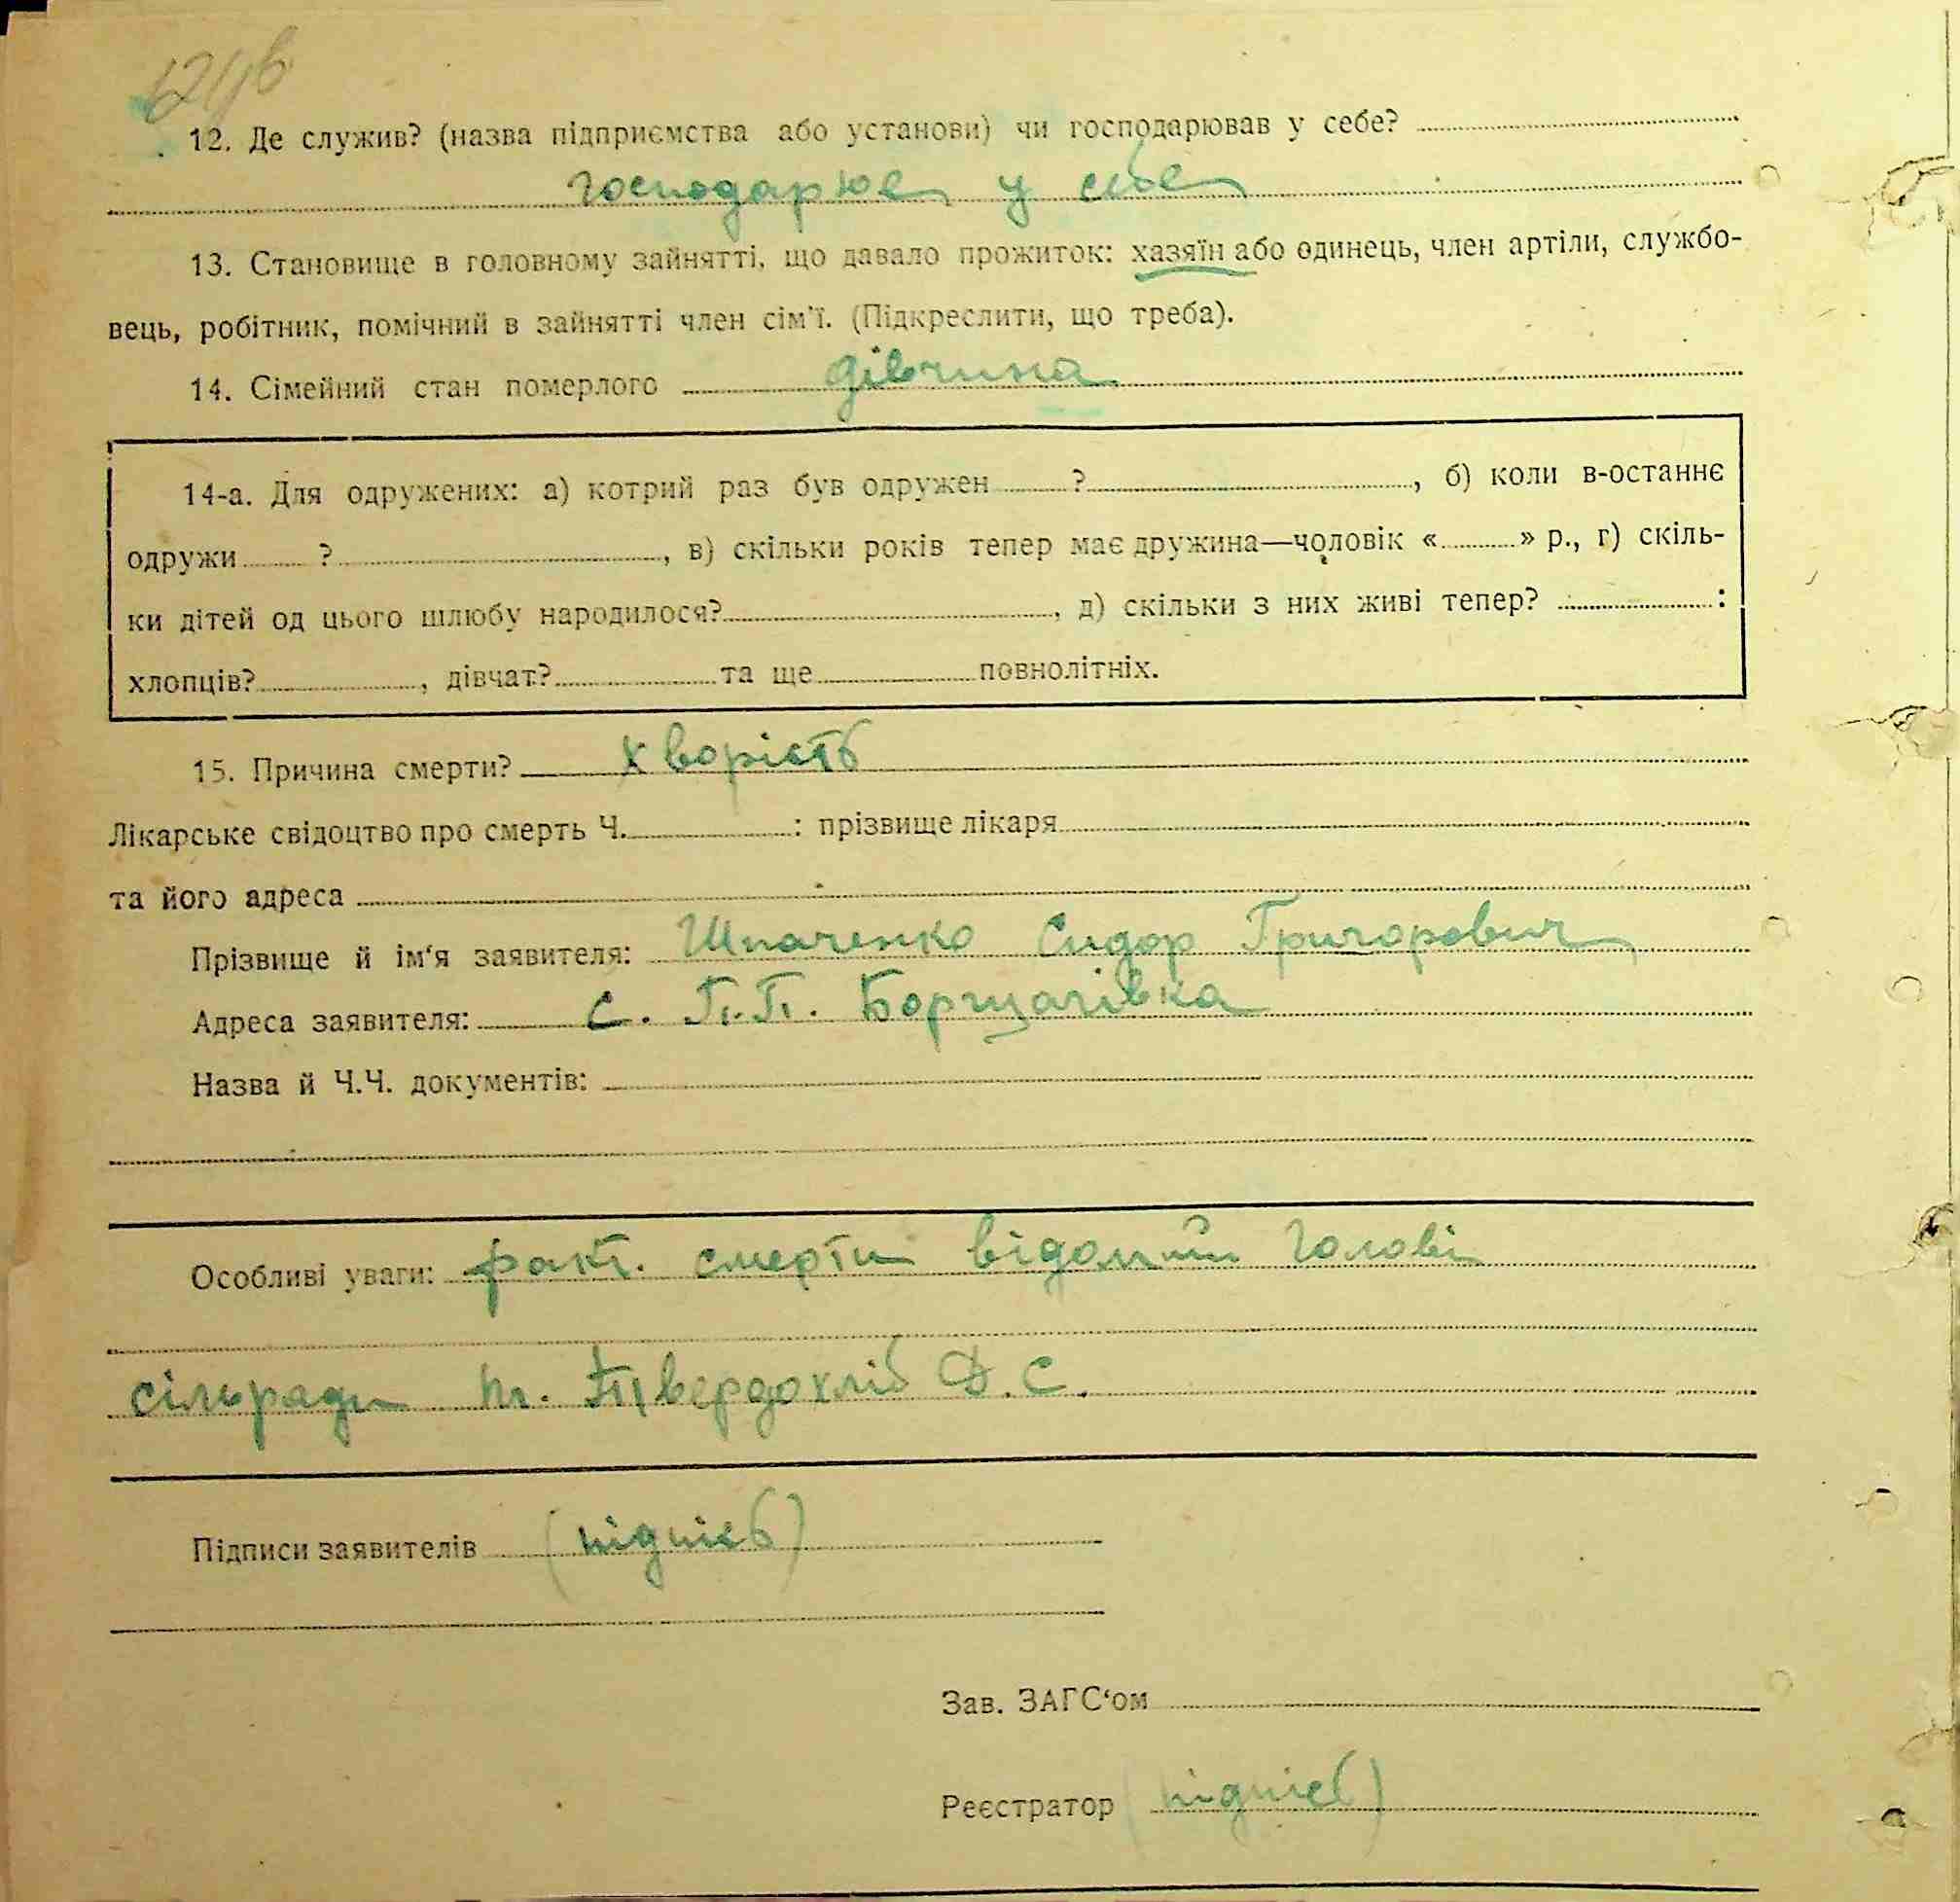 12. Де служив? (назва підприємства або установи) чи господарював у себе?
господарює у себе
13. Становище в головному зайнятті, що давало прожиток: хазяїн або одинець, член артіли, службо-
вець, робітник, помічний в зайнятті член сім'ї. (Підкреслити, що треба).
14. Сімейний стан померлого дівчина
14-а. Для одружених: а) котрий раз був одружен ? , б) коли в-останнє
одружи ? , в) скільки років тепер має дружина—чоловік « » р., г) скіль-
ки дітей од цього шлюбу народилося? , д) скільки з них живі тепер? :
хлопців? , дівчат? та ще повнолітніх.
15. Причина смерти? хворість
Лікарське свідоцтво про смерть Ч. : прізвище лікаря
та його адреса
Прізвище й ім'я заявителя: Шпаченко Сидор Григорович
Адреса заявителя: с. П.П. Борщагівка
Назва й Ч.Ч. документів:
Особливі уваги: факт. смерти відомий Голові
сільради т. Твердохліб Д. С.
Підписи заявителів (підпись)
Зав. ЗАГС'ом
Реєстратор (підпись)